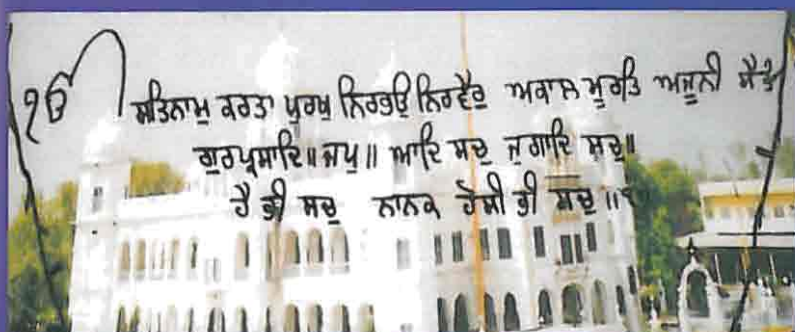 ੴ ਸਤਿਨਾਮੁ ਕਰਤਾ ਪੁਰਖੁ ਨਿਰਭਉ ਨਿਰਵੈਰੁ ਅਕਾਲ ਮੂਰਤਿ ਅਜੂਨੀ ਸੈਭੰ
ਗੁਰਪ੍ਰਸਾਦਿ॥ ਜਪੁ॥ ਆਦਿ ਸਚੁ ਜੁਗਾਦਿ ਸਚੁ॥
ਹੈ ਭੀ ਸਚੁ ਨਾਨਕ ਹੋਸੀ ਭੀ ਸਚੁ॥੧